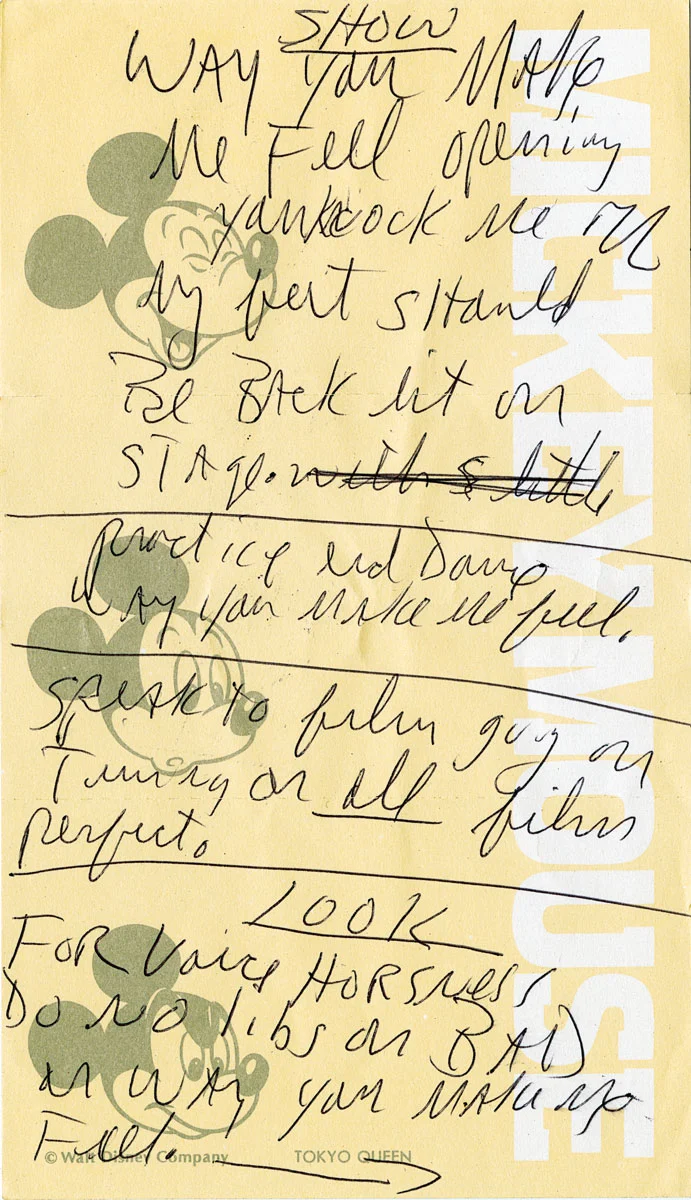 SHOW
WAY You Make
Me Feel opening
me
my shert should
Be Back lit on
STAge. with & little
practice end Dance
WAy you Make Me feel.
Speak to film guy on
Timing on all films
perfect.
LOOK
FOR Voice HORSNess
Do No libs on BAD
or WAy you Make me
Feel.
© Walt Disney Company TOKYO QUEEN
MICKEY MOUSE